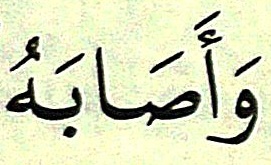 وَأَصَابَهُ